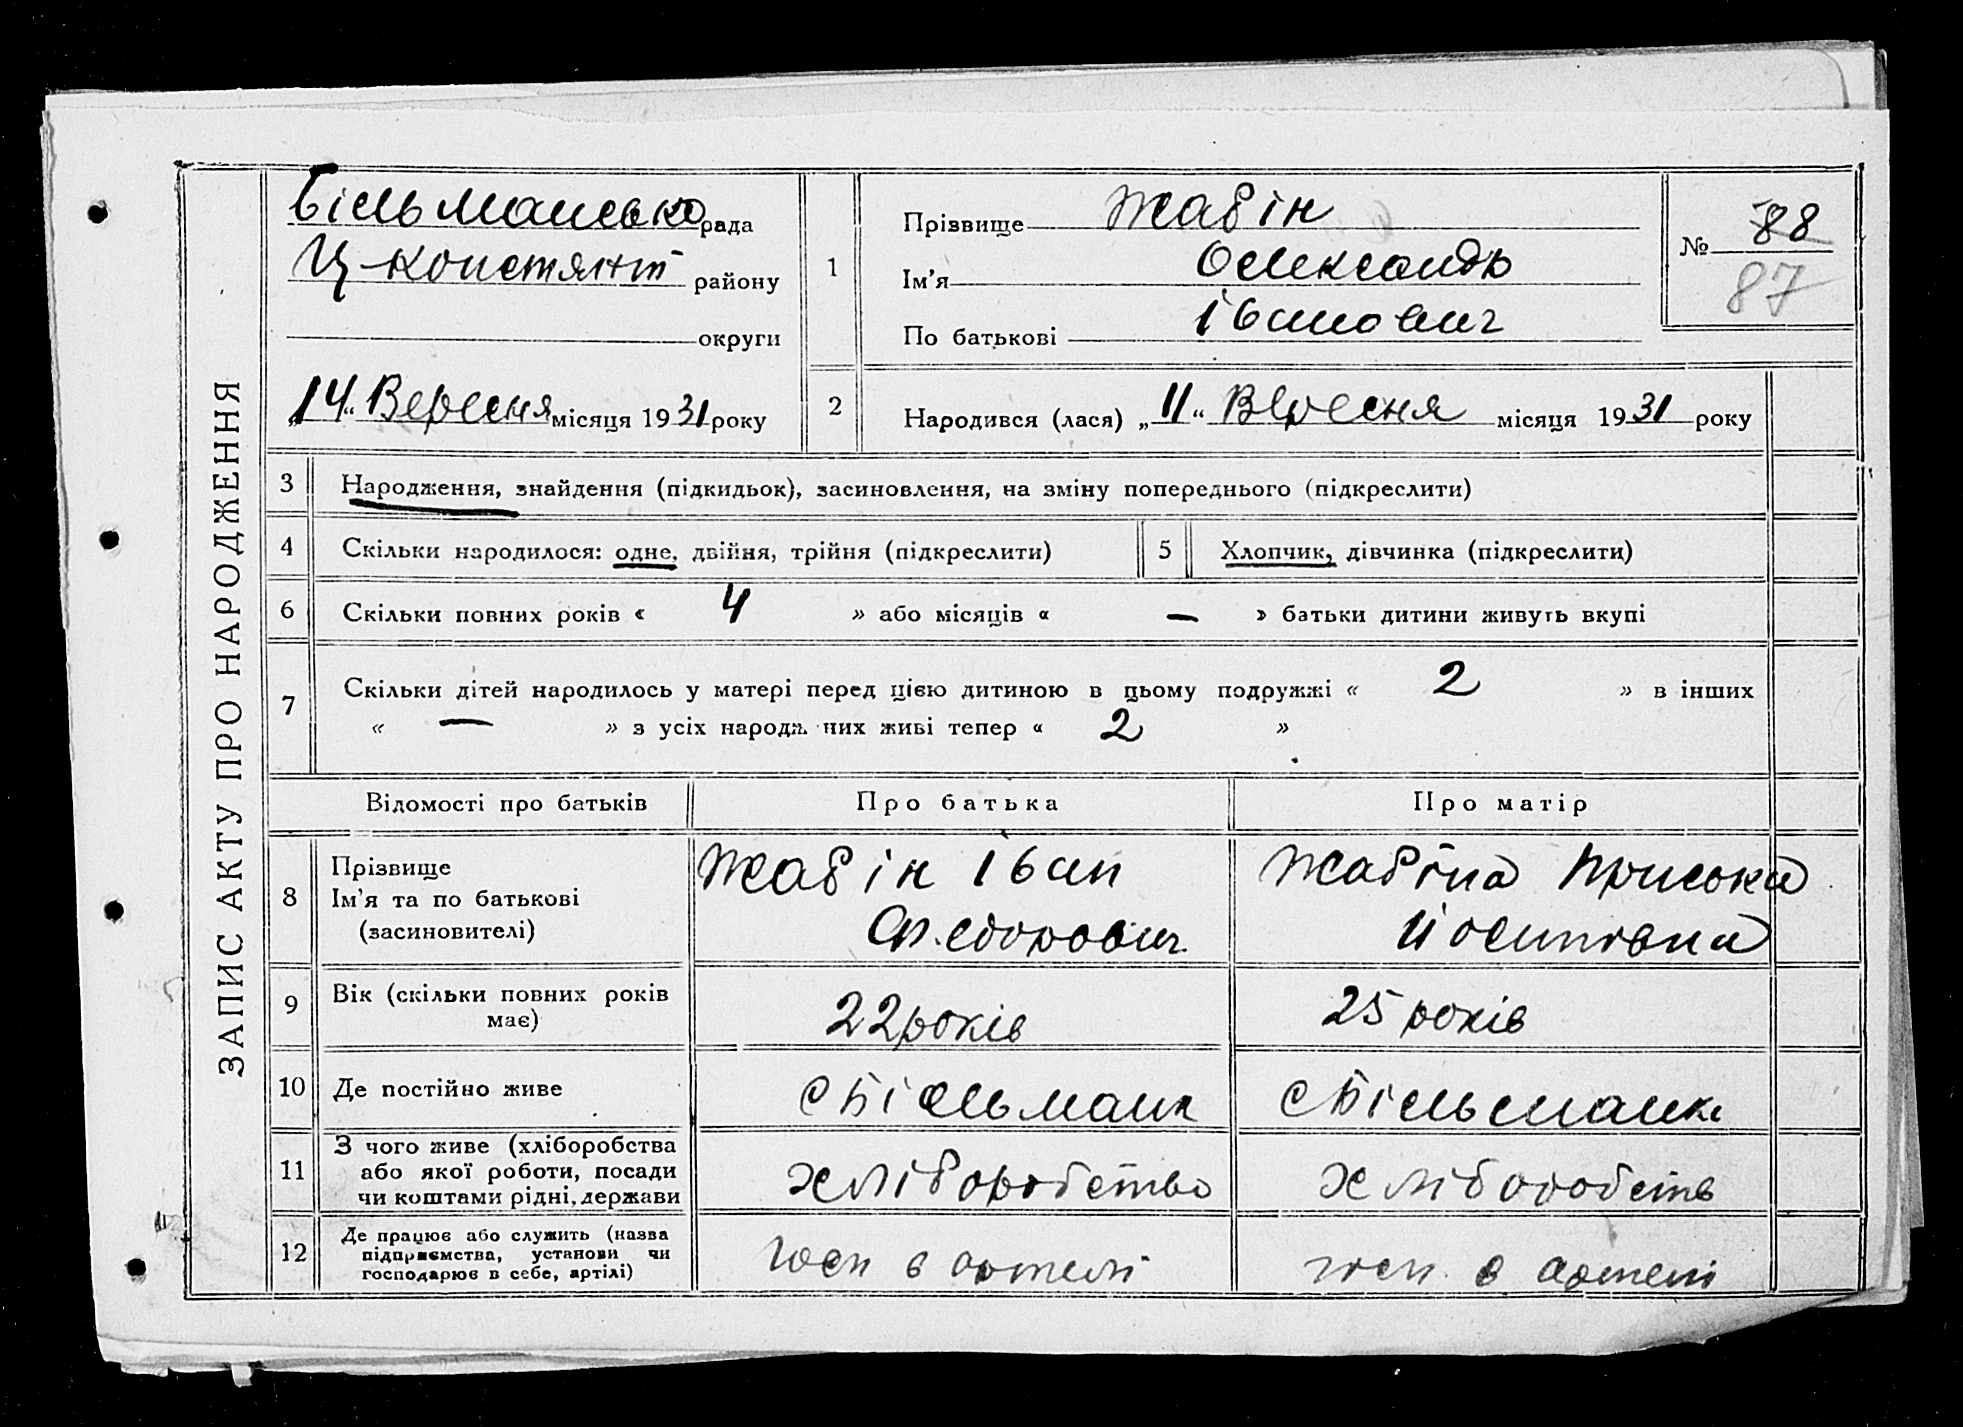 ЗАПИС АКТУ ПРО НАРОДЖЕННЯ
Більманська рада
Ц-Констянт району
округи
„14“ Вересня місяця 1931 року
1
Прізвище Жабін
Ім'я Олександр
По батькові Іванович
№ 88
87
2
Народився (лася) „11“ Вересня місяця 1931 року
3 Народження, знайдення (підкидьок), засиновлення, на зміну попереднього (підкреслити)
4 Скільки народилося: одне, двійня, трійня (підкреслити)
5 Хлопчик, дівчинка (підкреслити)
6 Скільки повних років « 4 » або місяців « — » батьки дитини живуть вкупі
7 Скільки дітей народилось у матері перед цією дитиною в цьому подружжі « 2 » в інших
« — » з усіх народж них живі тепер « 2 »
Відомості про батьків Про батька Про матір
8 Прізвище
Ім'я та по батькові
(засиновителі)
Жабін Іван
Федорович
Жабіна Приська
Йосипівна
9 Вік (скільки повних років
має)
22 років
25 років
10 Де постійно живе
с Більманк
с Більманка
11 З чого живе (хліборобства
або якої роботи, посади
чи коштами рідні, держави
хліборобство
хліборобств
12 Де працює або служить (назва
підприємства, установи чи
господарює в себе, артілі)
госп в артелі
госп. в артелі